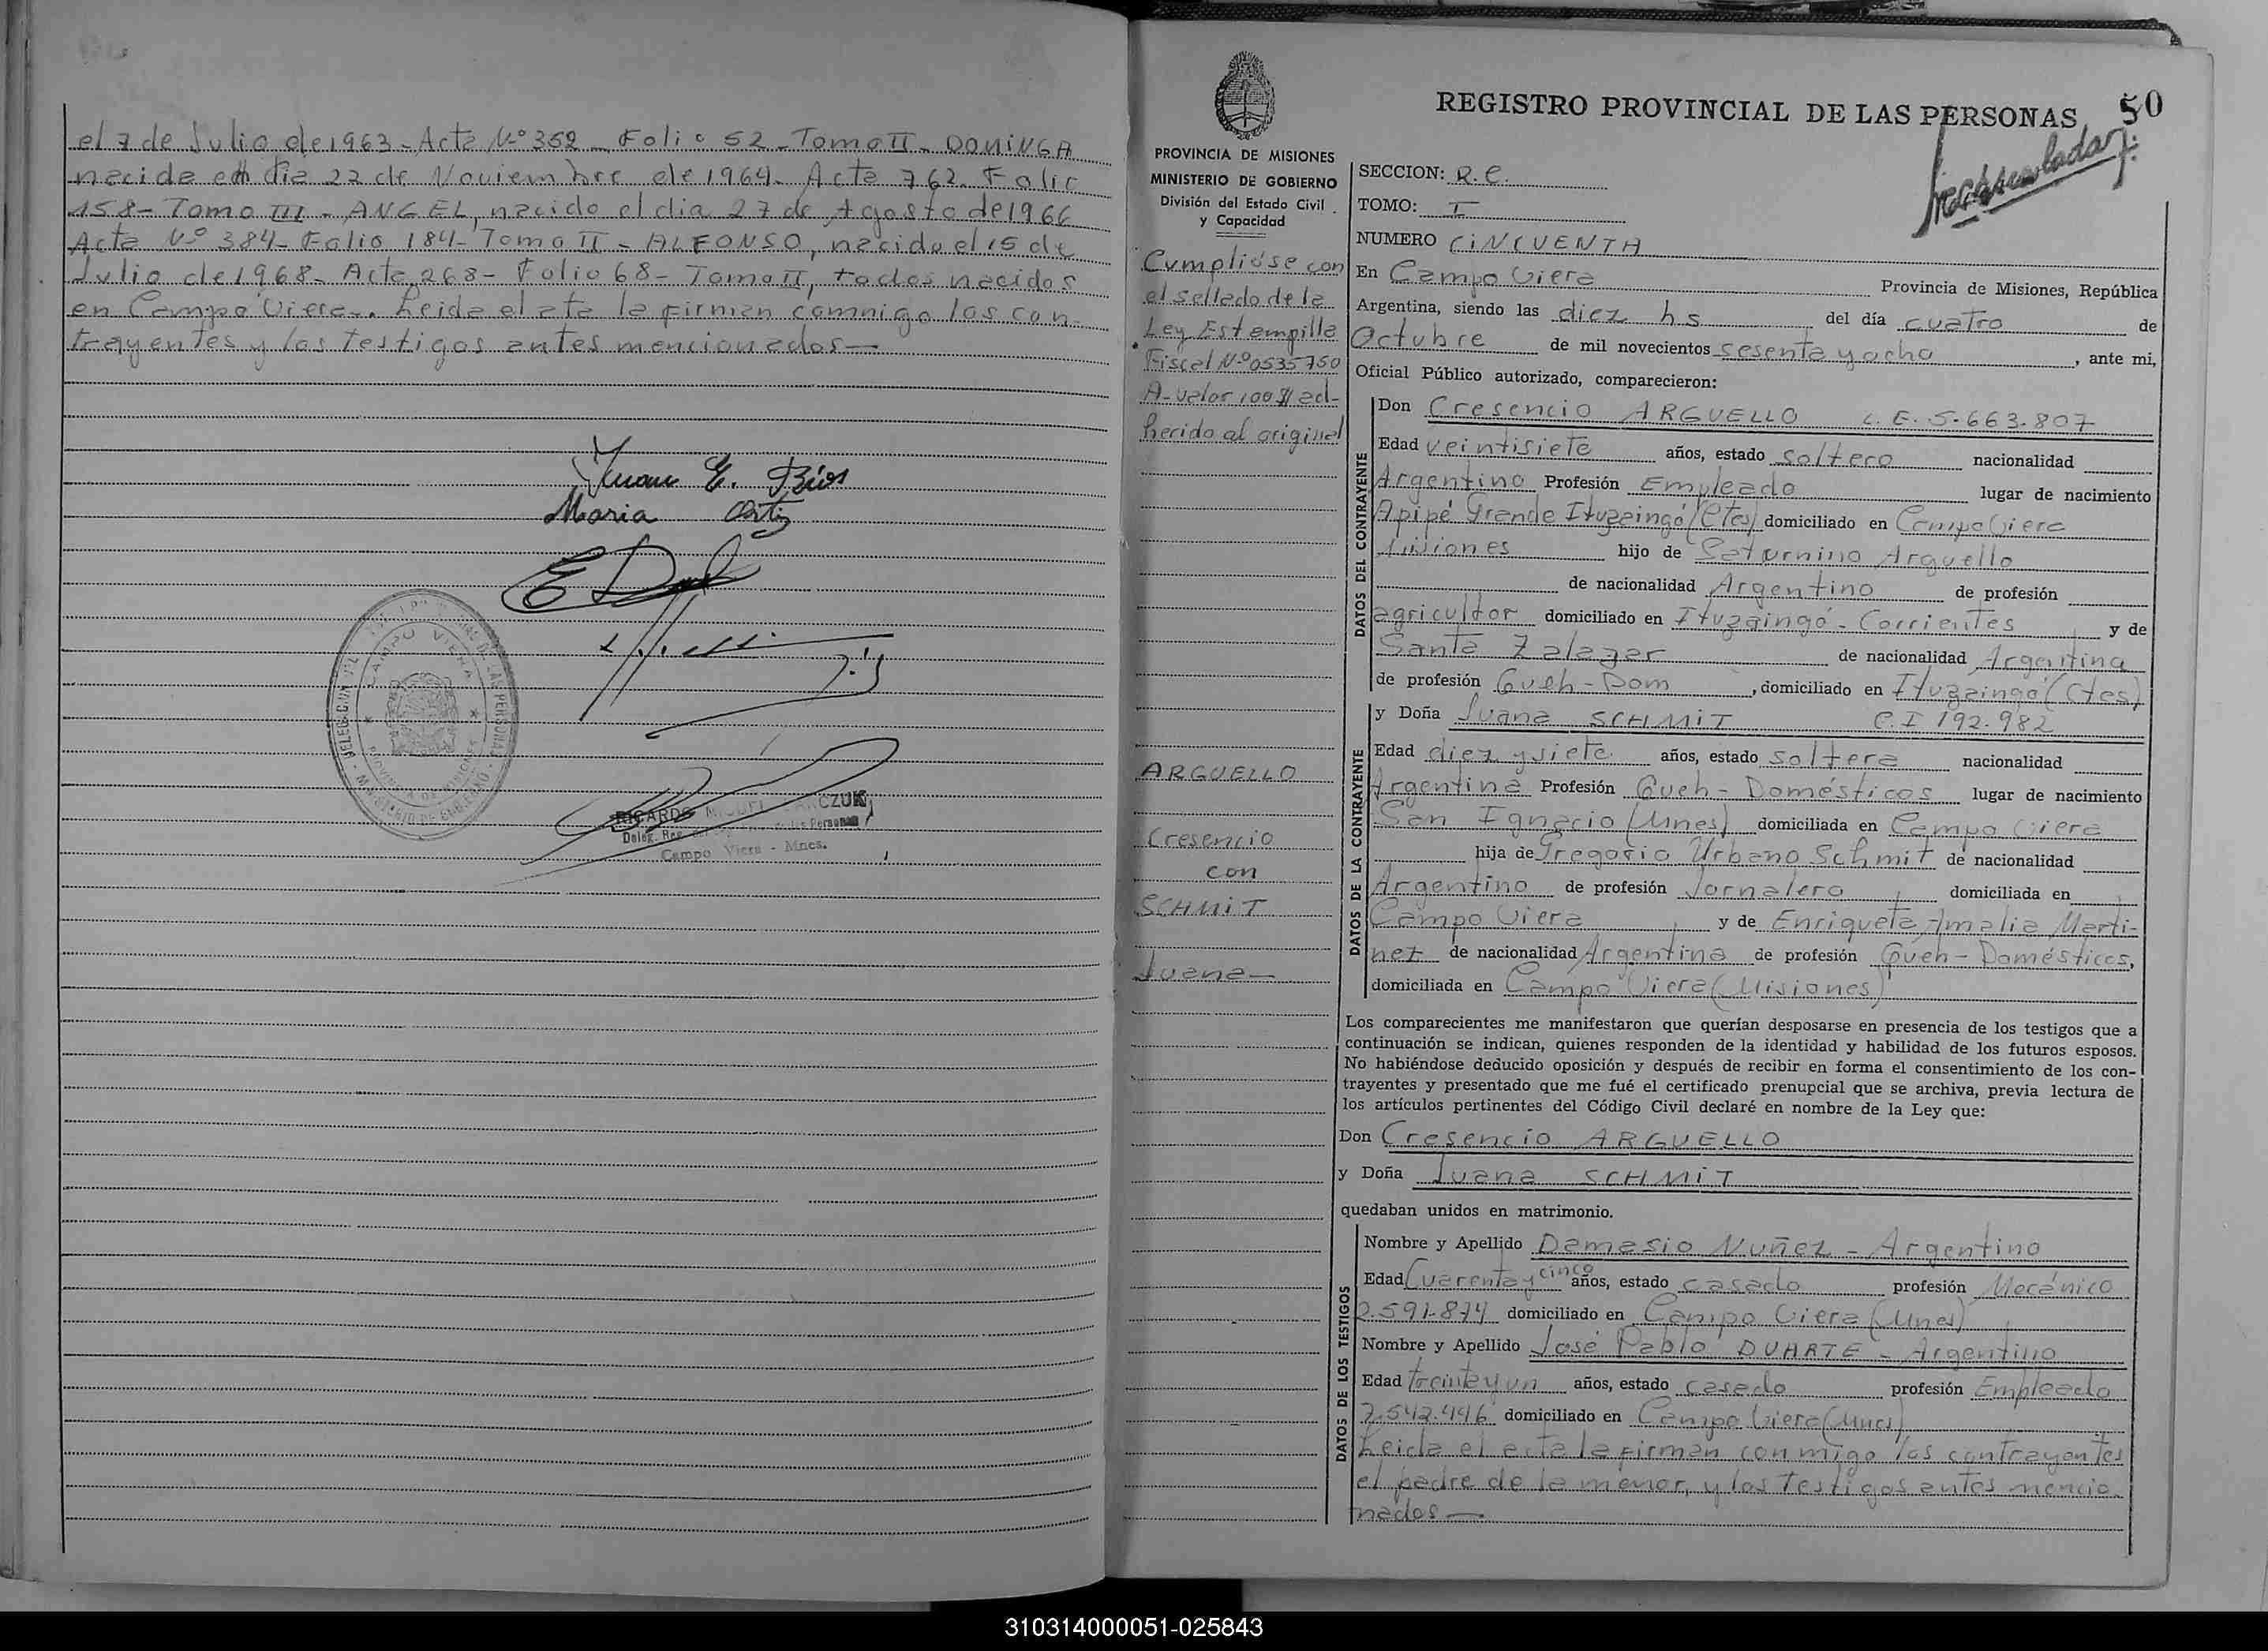 el 7 de Julio de 1963 - Acta Nº 352 - Folio 52 - Tomo II - DOMINGA
nacida dia 22 de Noviembre de 1964. Acta 762. Folio
158 - Tomo III - ANGEL, nacido el dia 27 de Agosto de 1966
Acta Nº 384 - Folio 184 - Tomo II - ALFONSO, nacido el 15 de
Julio de 1968 - Acta 268 - Folio 68 - Tomo II, todos nacidos
en Campo Viera.. Leida el ata la firman comnigo los con-
trayentes y los testigos antes mencionados —
Juan E. Bios
Maria Ortiz
CAMPO VIERA
RICARDO
Deleg. Reg. de las Personas
Campo Viera - Mnes.
50
REGISTRO PROVINCIAL DE LAS PERSONAS
PROVINCIA DE MISIONES
MINISTERIO DE GOBIERNO
División del Estado Civil
y Capacidad
Cumplióse con
el sellado de la
Ley Estampilla
Fiscal Nº 0535750
A - valor 100 $ ad-
herido al original
ARGUELLO
Cresencio
con
SCHMIT
Juana —
SECCION: R. C.
TOMO: I
NUMERO CINCUENTA
En Campo Viera Provincia de Misiones, República
Argentina, siendo las diez hs del día cuatro de
Octubre de mil novecientos sesenta y ocho, ante mi,
Oficial Público autorizado, comparecieron:
DATOS DEL CONTRAYENTE
Don Cresencio ARGUELLO L. E. 5.663.807
Edad veintisiete años, estado soltero nacionalidad
Argentino Profesión Empleado lugar de nacimiento
Apipé Grande Ituzaingó (Ctes) domiciliado en Campo Viera
Misiones hijo de Saturnino Arguello
de nacionalidad Argentino de profesión
agricultor domiciliado en Ituzaingó - Corrientes y de
Santa Zalazar de nacionalidad Argentina
de profesión Queh - Dom, domiciliado en Ituzaingó (Ctes)
DATOS DE LA CONTRAYENTE
y Doña Juana SCHMIT C. I 192.982
Edad diez y siete años, estado soltera nacionalidad
Argentina Profesión Queh - Domésticos lugar de nacimiento
San Ignacio (Mnes) domiciliada en Campo Viera
hija de Gregorio Urbano Schmit de nacionalidad
Argentino de profesión Jornalero domiciliada en
Campo Viera y de Enriqueta Amalia Marti-
nez de nacionalidad Argentina de profesión Queh - Domésticos,
domiciliada en Campo Viera (Misiones)
Los comparecientes me manifestaron que querían desposarse en presencia de los testigos que a
continuación se indican, quienes responden de la identidad y habilidad de los futuros esposos.
No habiéndose deducido oposición y después de recibir en forma el consentimiento de los con-
trayentes y presentado que me fué el certificado prenupcial que se archiva, previa lectura de
los artículos pertinentes del Código Civil declaré en nombre de la Ley que:
Don Cresencio ARGUELLO
y Doña Juana SCHMIT
quedaban unidos en matrimonio.
DATOS DE LOS TESTIGOS
Nombre y Apellido Damasio Nuñez - Argentino
Edad Cuarenta y cinco años, estado casado profesión Mecánico
2.591.874 domiciliado en Campo Viera (Mnes)
Nombre y Apellido José Pablo DUARTE - Argentino
Edad treinta y un años, estado casado profesión Empleado
7.542.446 domiciliado en Campo Viera (Mnes)
Leida el acta la firman conmigo los contrayentes
el padre de la menor, y los testigos antes mencio-
nados —
310314000051-025843